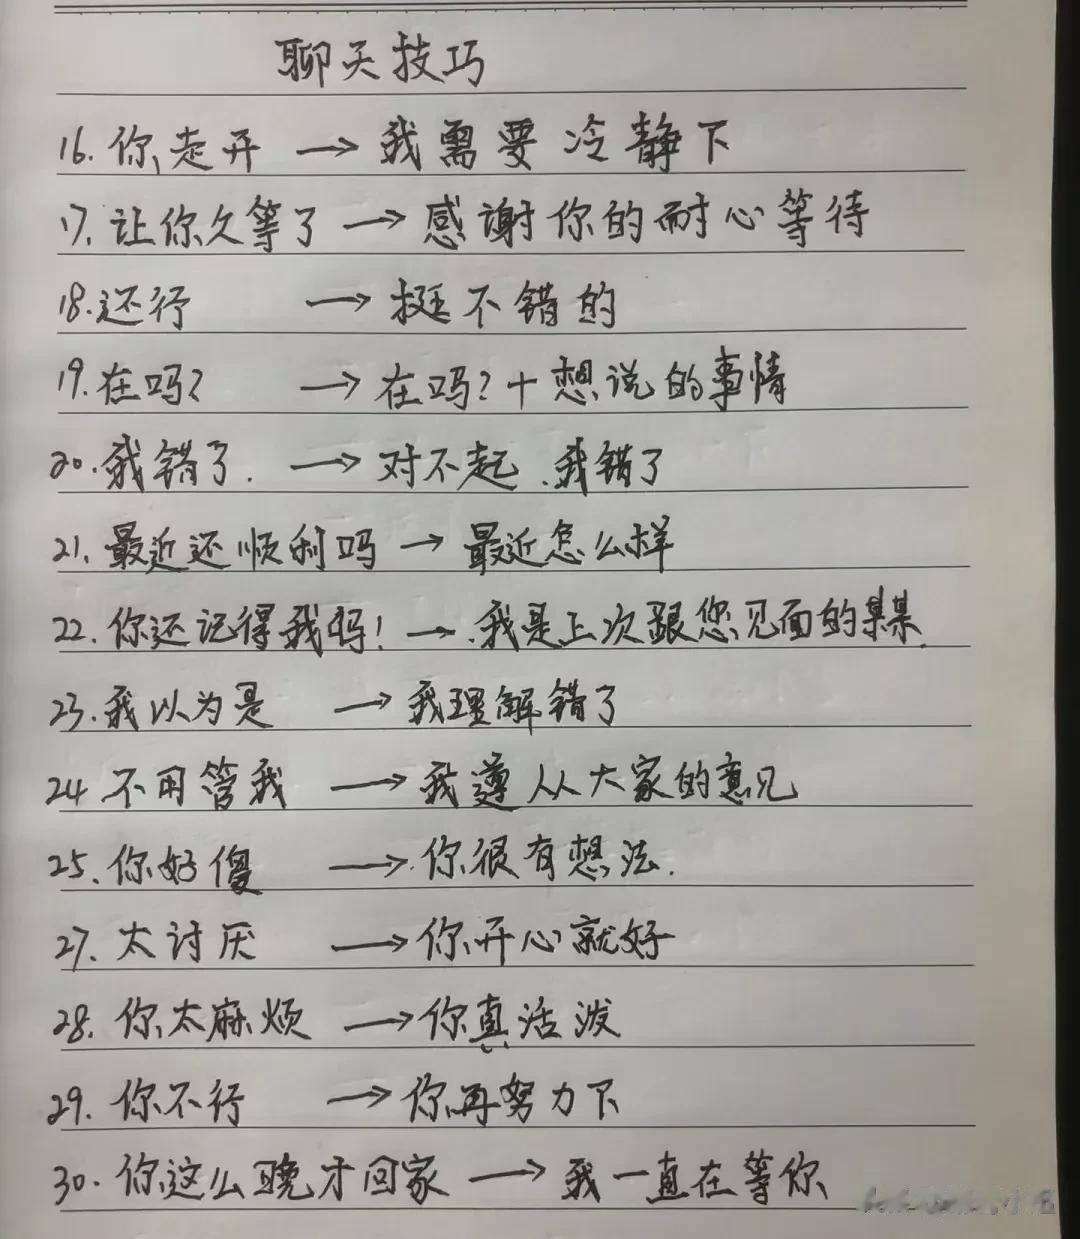 聊天技巧
16.你走开 → 我需要冷静下
17.让你久等了 → 感谢你的耐心等待
18.还行 → 挺不错的
19.在吗? → 在吗?+想说的事情
20.我错了. → 对不起、我错了
21.最近还顺利吗 → 最近怎么样
22.你还记得我吗! → 我是上次跟您见面的某某.
23.我以为是 → 我理解错了
24 不用管我 → 我遵从大家的意见
25.你好傻 → 你很有想法.
27.太讨厌 → 你开心就好
28.你太麻烦 → 你真活泼
29.你不行 → 你再努力下
30.你这么晚才回家 → 我一直在等你